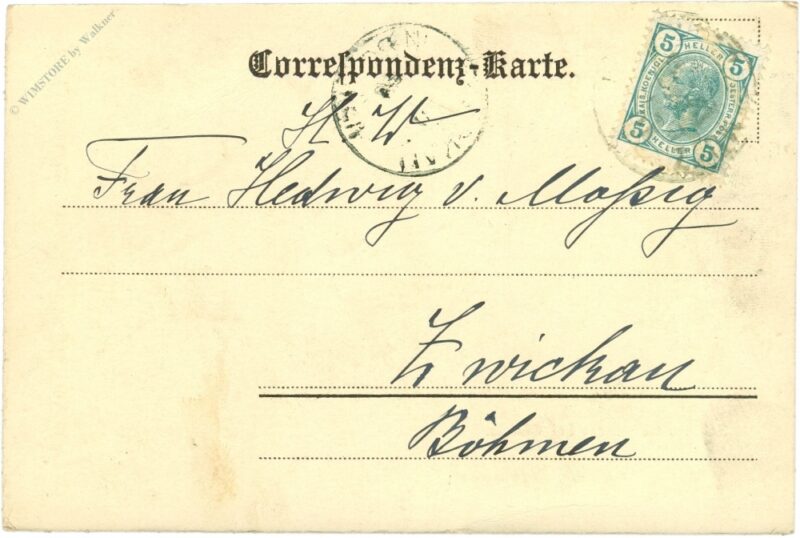 © WIMSTORE by Walkner
Correspondenz-Karte.
5 HELLER 5
KAIS. KOENIGL. OESTERR. POST
5 HELLER 5
H. W.
Frau Hedwig v. Moßig
Zwickau
Böhmen